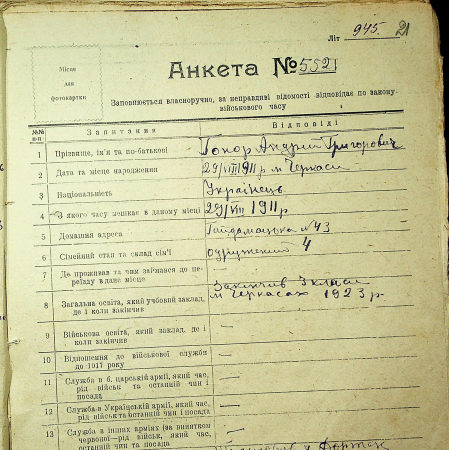 Літ 945. 21
Місце
для
фотокартки
Анкета № 552
Заповнюється власноручно, за неправдиві відомості відповідає по закону
військового часу
№№ п-п Запитання Відповіді
1 Прізвище, ім'я та по-батькові Гонор Андрій Григорович
2 Дата та місце народження 29/VIII 1911 р м Черкаси
3 Національність Українець
4 З якого часу мешкає в даному місці 29/VIII 1911 р
5 Домашня адреса Гайдамацька № 43
6 Сімейний стан та склад сім'ї одружений 4
7 Де проживав та чим займався до переїзду в дане місце
8 Загальна освіта, який учбовий заклад, де і коли закінчив Закінчив 3 класи
м Черкасах 1923 р.
9 Військова освіта, який заклад, де і коли закінчив —
10 Відношення до військової служби до 1917 року —
11 Служба в б. царській армії, який час, рід військ та останній чин і посада —
12 Служба в Українській армії, який час, рід військ та останній чин і посада —
13 Служба в інших арміях (за винятком червоної—рід військ, який час, останній чин та посада —